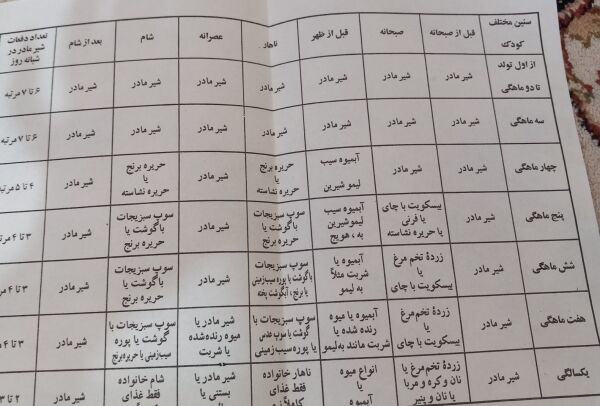 سنین مختلف کودک | قبل از صبحانه | صبحانه | قبل از ظهر | ناهار | عصرانه | شام | بعد از شام | تعداد دفعات شیر مادر در شبانه روز
از اول تولد تا دو ماهگی | شیر مادر | شیر مادر | شیر مادر | شیر مادر | شیر مادر | شیر مادر | شیر مادر | ۶ تا ۷ مرتبه
سه ماهگی | شیر مادر | شیر مادر | شیر مادر | شیر مادر | شیر مادر | شیر مادر | شیر مادر | ۶ تا ۷ مرتبه
چهار ماهگی | شیر مادر | شیر مادر | آبمیوه سیب لیمو شیرین | حریره برنج یا حریره نشاسته | شیر مادر | حریره برنج یا حریره نشاسته | شیر مادر | ۴ تا ۵ مرتبه
پنج ماهگی | شیر مادر | بیسکویت با چای یا فرنی یا حریره نشاسته | آبمیوه سیب لیمو شیرین به ، هویج | سوپ سبزیجات با گوشت یا حریره برنج | شیر مادر | سوپ سبزیجات با گوشت یا حریره برنج | شیر مادر | ۳ تا ۴
شش ماهگی | شیر مادر | زردهٔ تخم مرغ یا بیسکویت با چای | آبمیوه یا شربت مثلاً به لیمو | سوپ سبزیجات با گوشت یا پوره سیب زمینی یا برنج ، آبگوشت پخته | شیر مادر | سوپ سبزیجات با گوشت یا حریره برنج | شیر مادر | ۳ تا ۴
هفت ماهگی | شیر مادر | زردهٔ تخم مرغ یا بیسکویت با چای | آبمیوه یا میوه رنده شده یا شربت مانند به لیمو | سوپ سبزیجات با گوشت یا سوپ عدس یا پوره سیب زمینی | شیر مادر یا میوه رنده شده یا شربت | سوپ سبزیجات با گوشت یا پوره سیب زمینی یا حریره برنج | شیر مادر | ۳ تا ۴
یکسالگی | شیر مادر | زردهٔ تخم مرغ یا نان و کره و مربا یا نان و پنیر | انواع میوه یا آبمیوه | ناهار خانواده فقط غذای کاملاً | شیر مادر یا بستنی یا | شام خانواده فقط غذای | شیر مادر | ۲ تا ۳